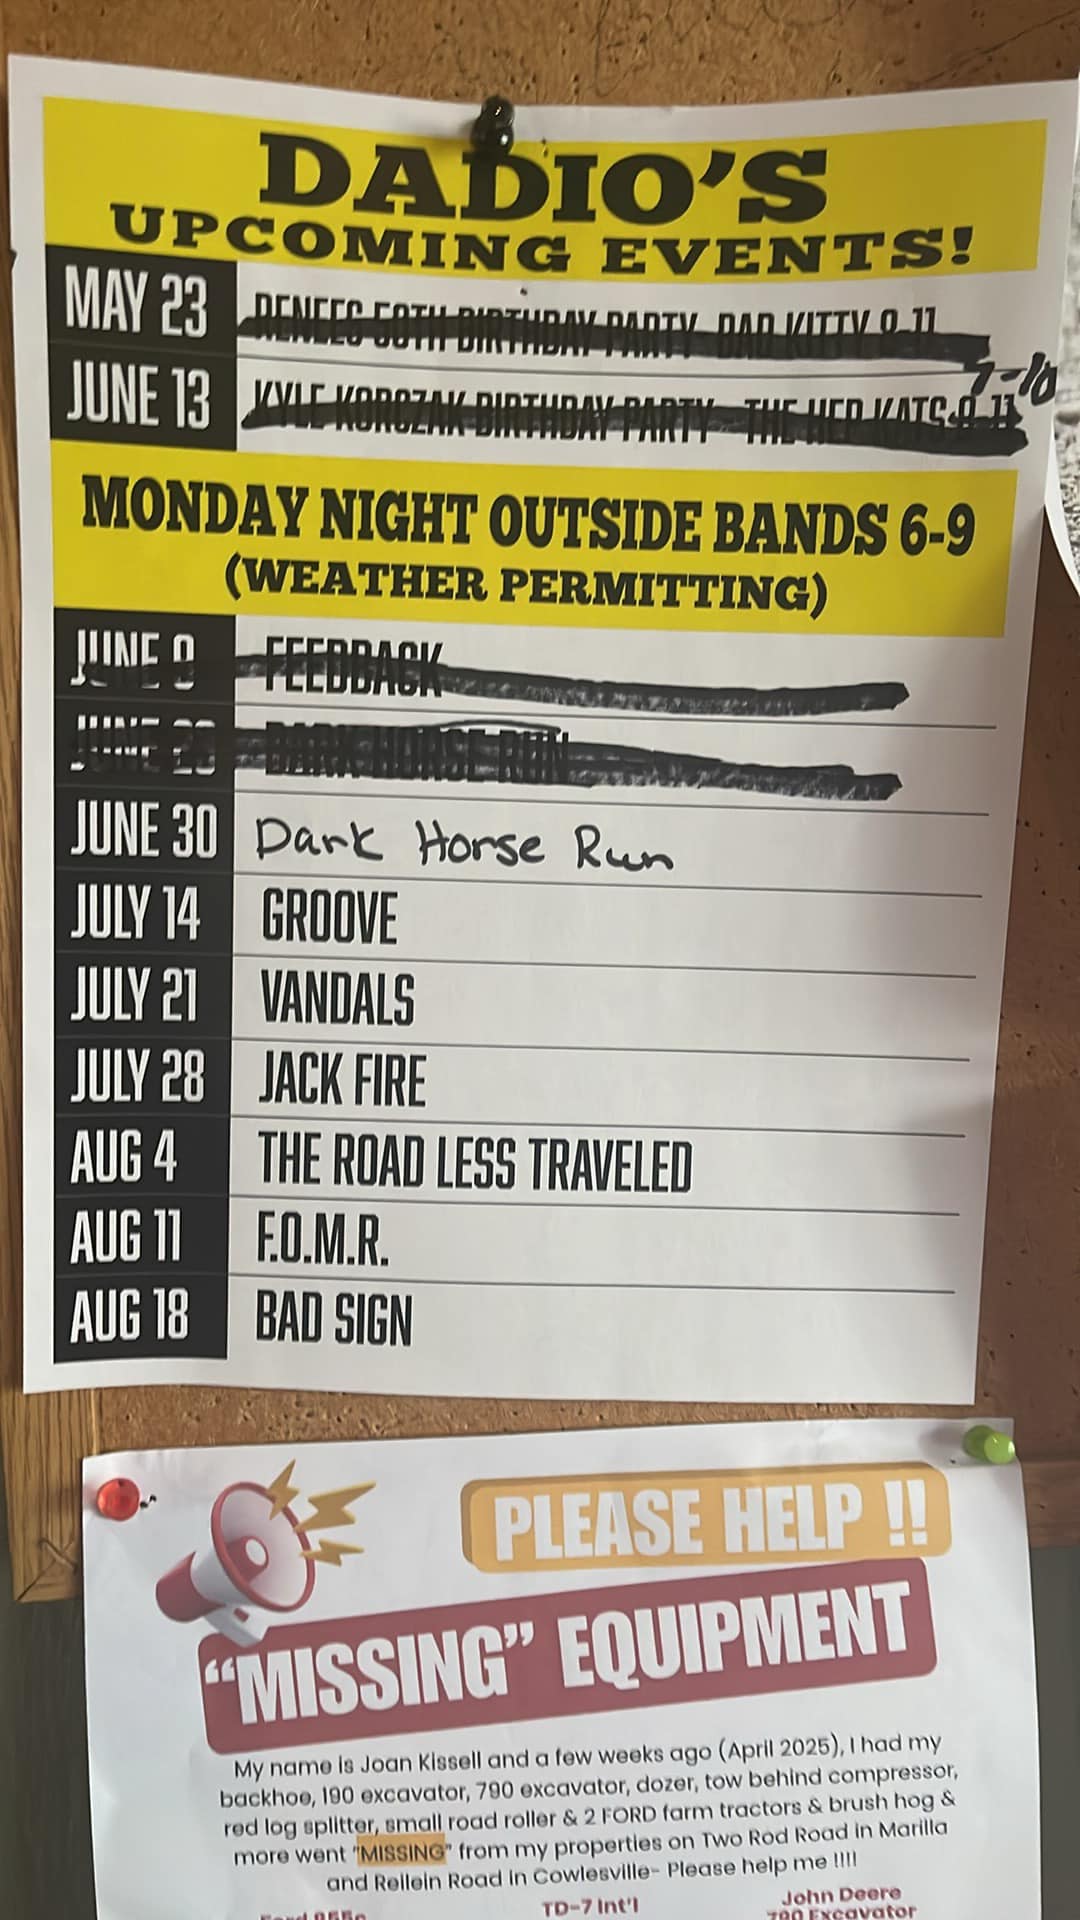 DADIO'S
UPCOMING EVENTS!
MAY 23 RENEES 50TH BIRTHDAY PARTY BAD KITTY 8-11
7-10
JUNE 13 KYLE KORCZAK BIRTHDAY PARTY - THE HEP KATS 8-11
MONDAY NIGHT OUTSIDE BANDS 6-9
(WEATHER PERMITTING)
JUNE 9 FEEDBACK
JUNE 23 DARK HORSE RUN
JUNE 30 Dark Horse Run
JULY 14 GROOVE
JULY 21 VANDALS
JULY 28 JACK FIRE
AUG 4 THE ROAD LESS TRAVELED
AUG 11 F.O.M.R.
AUG 18 BAD SIGN
PLEASE HELP !!
"MISSING" EQUIPMENT
My name is Joan Kissell and a few weeks ago (April 2025), I had my
backhoe, 190 excavator, 790 excavator, dozer, tow behind compressor,
red log splitter, small road roller & 2 FORD farm tractors & brush hog &
more went "MISSING" from my properties on Two Rod Road in Marilla
and Reilein Road in Cowlesville- Please help me !!!!
Ford 855c TD-7 Int'l John Deere
790 Excavator